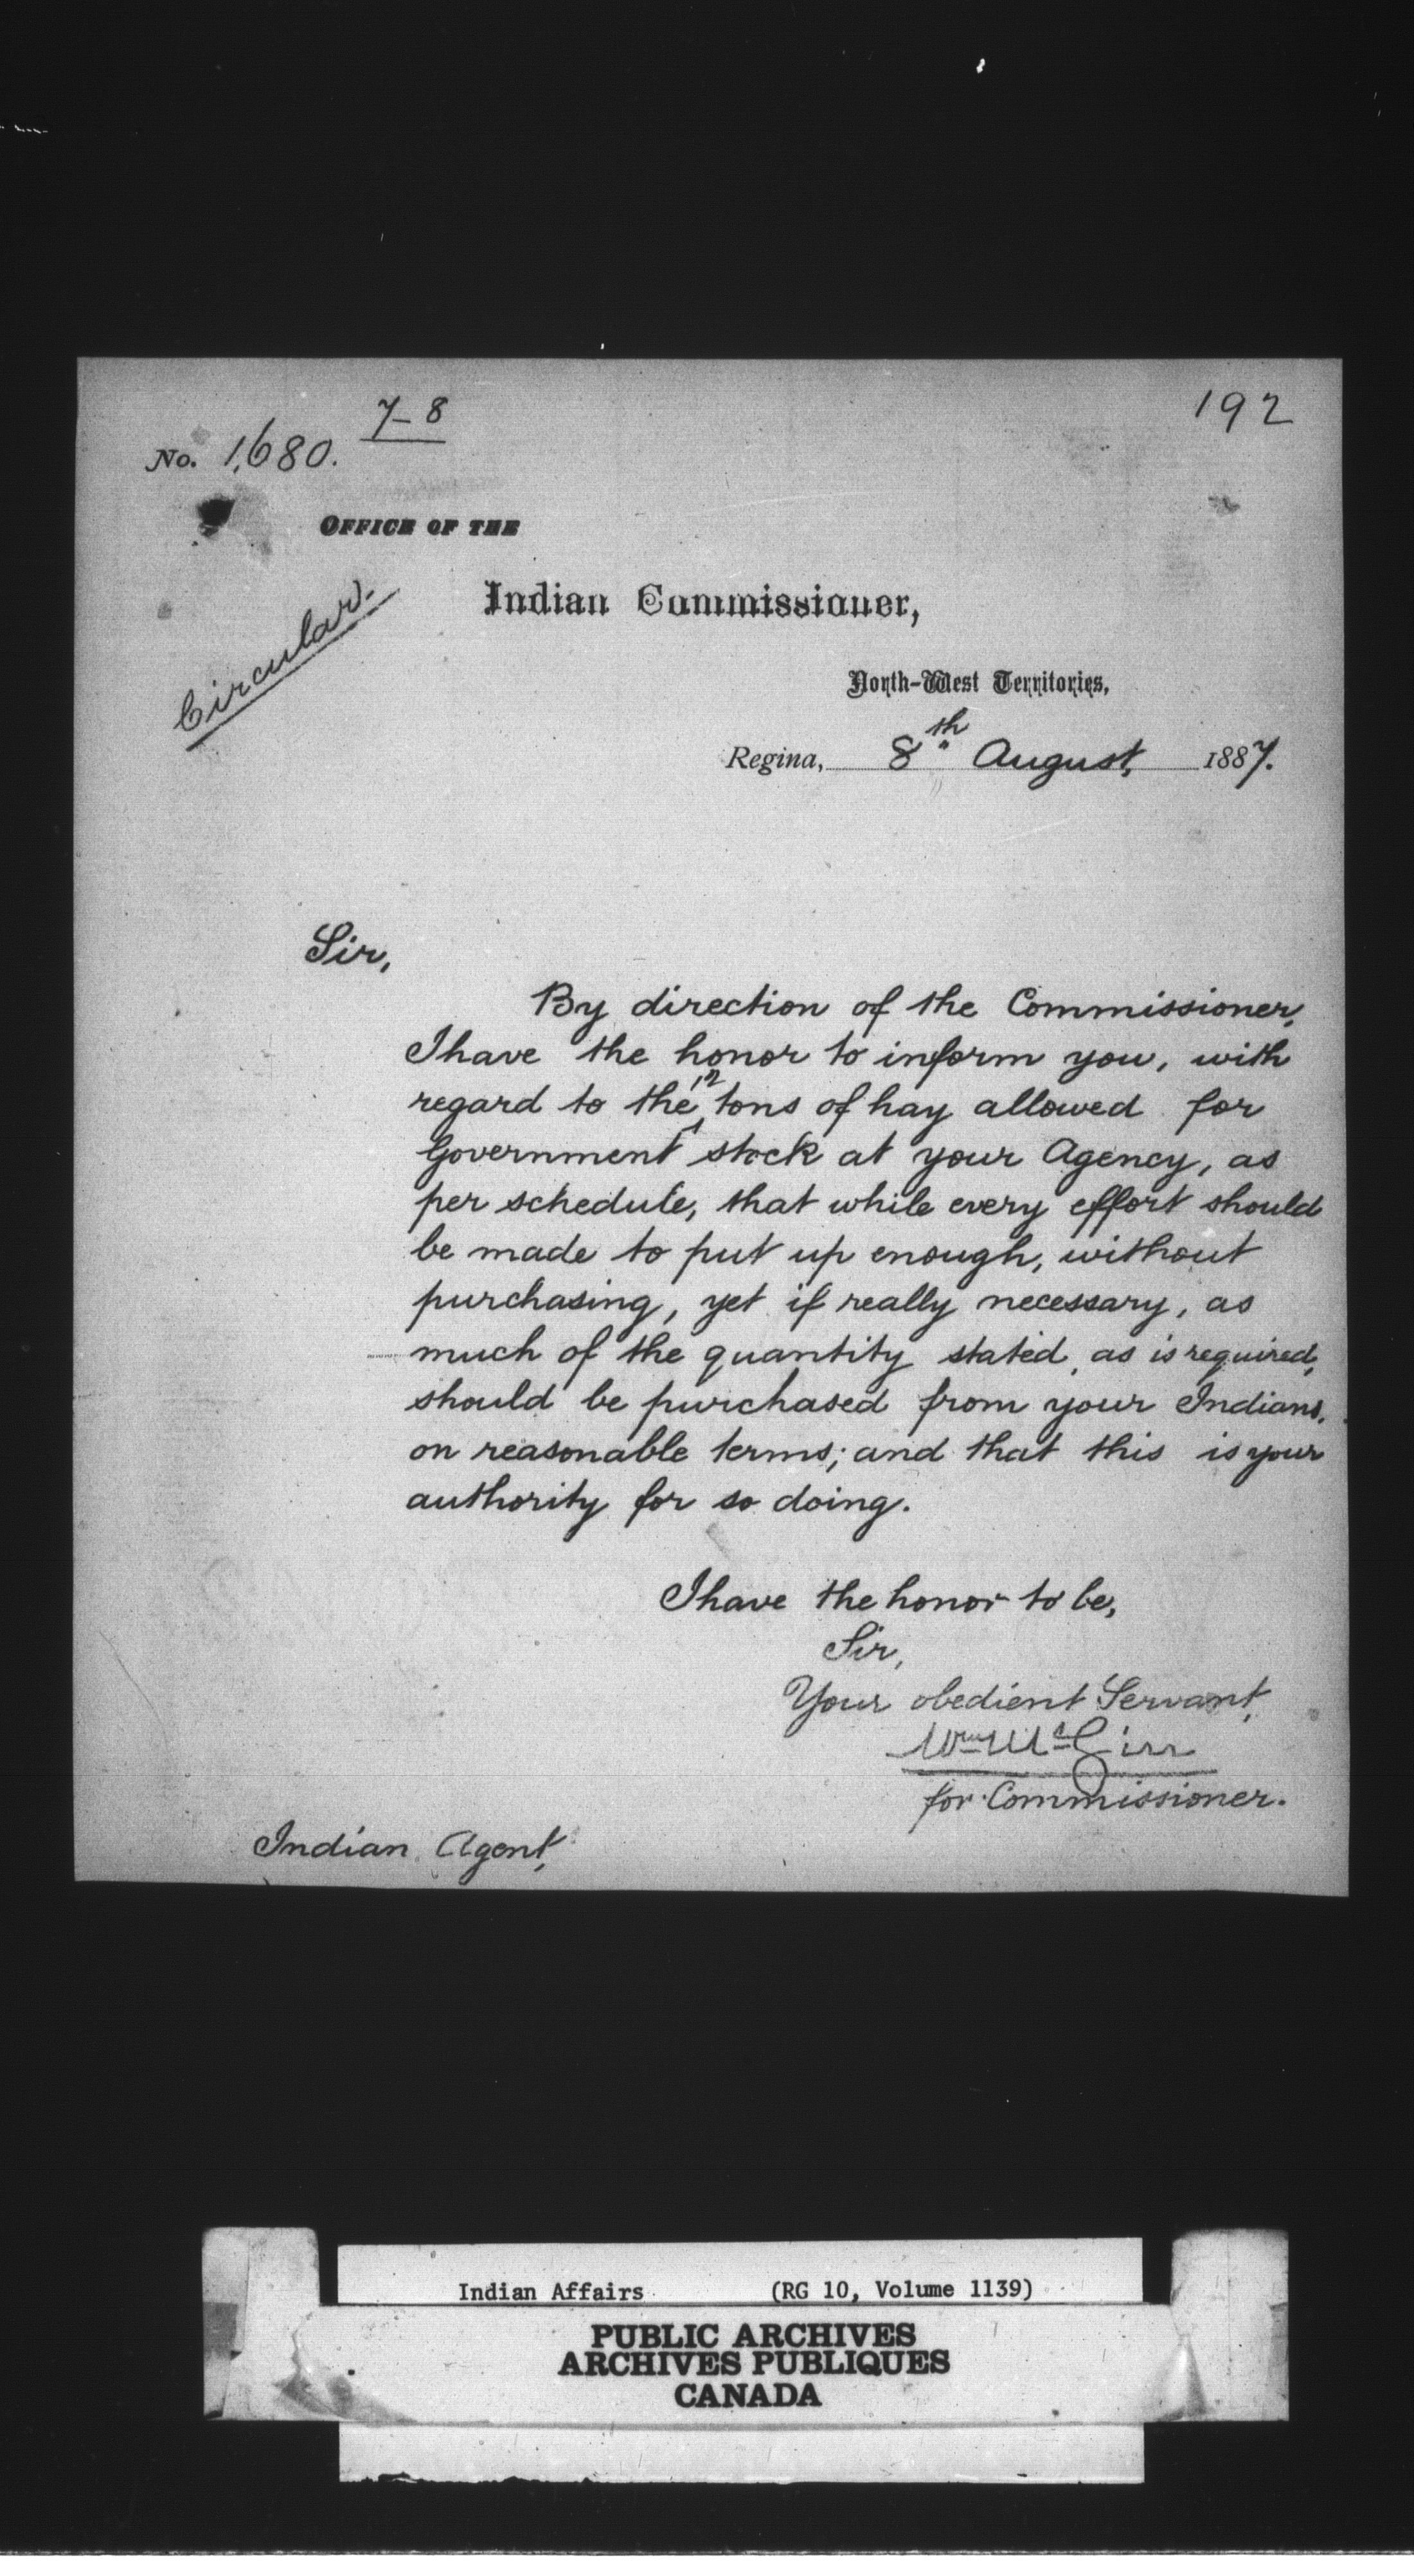 7-8
192
No. 1,680.
OFFICE OF THE
Indian Commissioner,
Circular.
North-West Territories,
Regina, 8th August, 1887.
Sir,
By direction of the Commissioner,
I have the honor to inform you, with
regard to the 12 tons of hay allowed for
Government stock at your Agency, as
per schedule, that while every effort should
be made to put up enough, without
purchasing, yet if really necessary, as
much of the quantity stated, as is required,
should be purchased from your Indians,
on reasonable terms; and that this is your
authority for so doing.
I have the honor to be,
Sir,
Your obedient Servant,
Wm McGirr
for Commissioner.
Indian Agent,
Indian Affairs (RG 10, Volume 1139)
PUBLIC ARCHIVES
ARCHIVES PUBLIQUES
CANADA